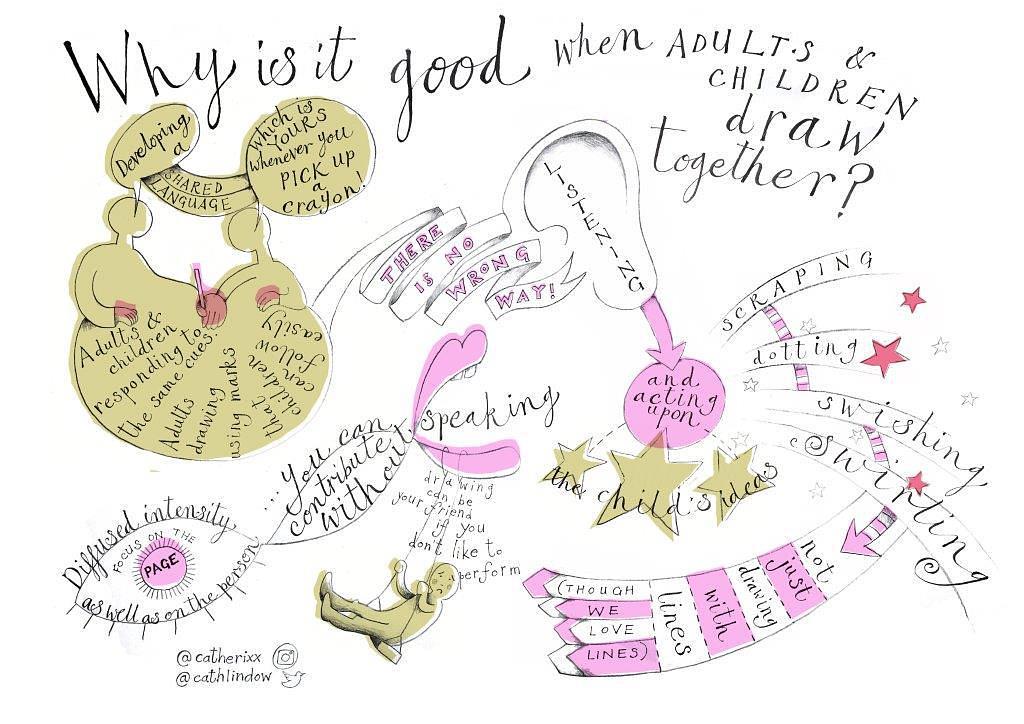 Why is it good when ADULTS &
CHILDREN
draw
together?
Developing
a
SHARED
LANGUAGE
which is
YOURS
whenever you
PICK UP
a
crayon!
Adults &
children
responding to
the same cues
Adults
drawing
using marks
that
children
can
follow
easily
THERE
IS NO
WRONG
WAY!
LISTENING
and
acting
upon
the child's ideas
SCRAPING
dotting
swishing
Swirling
not
just
drawing
with
lines
(THOUGH
WE
LOVE
LINES)
...You can
contribute
without
speaking
drawing
can be
your friend
if you
don't like to
perform
Diffused intensity
FOCUS ON THE
PAGE
as well as on the person
@catherixx
@cathlindow